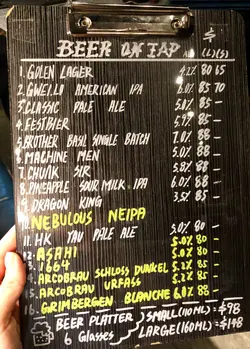 BEER ON TAP $
(L)(S)
1. GOLEN LAGER 4.2% 80 65
2. GWEILO AMERICAN IPA 6.0% 85 70
3. CLASSIC PALE ALE 5.0% 85 -
4. FESTBIER 85 -
5. BROTHER BASIL SINGLE BATCH 7.0% 88 -
6. MACHINE MEN 5.0% 88 -
7. CHUNK SIR 88 -
8. PINEAPPLE SOUR MILK IPA 6.0% 88 -
9. DRAGON KING 85 -
10. NEBULOUS NEIPA
11. HK YAU PALE ALE 5.0% 80 -
12. ASAHI 5.0% 80 -
13. 1664 5.0% 88 -
14. ARCOBRAU SCHLOSS DUNKEL 85 -
15. ARCOBRAU URFASS 85 -
16. GRIMBERGEN BLANCHE 6.0% 88 -
BEER PLATTER SMALL (110ML)=$98
6 Glasses LARGE (160ML)=$148